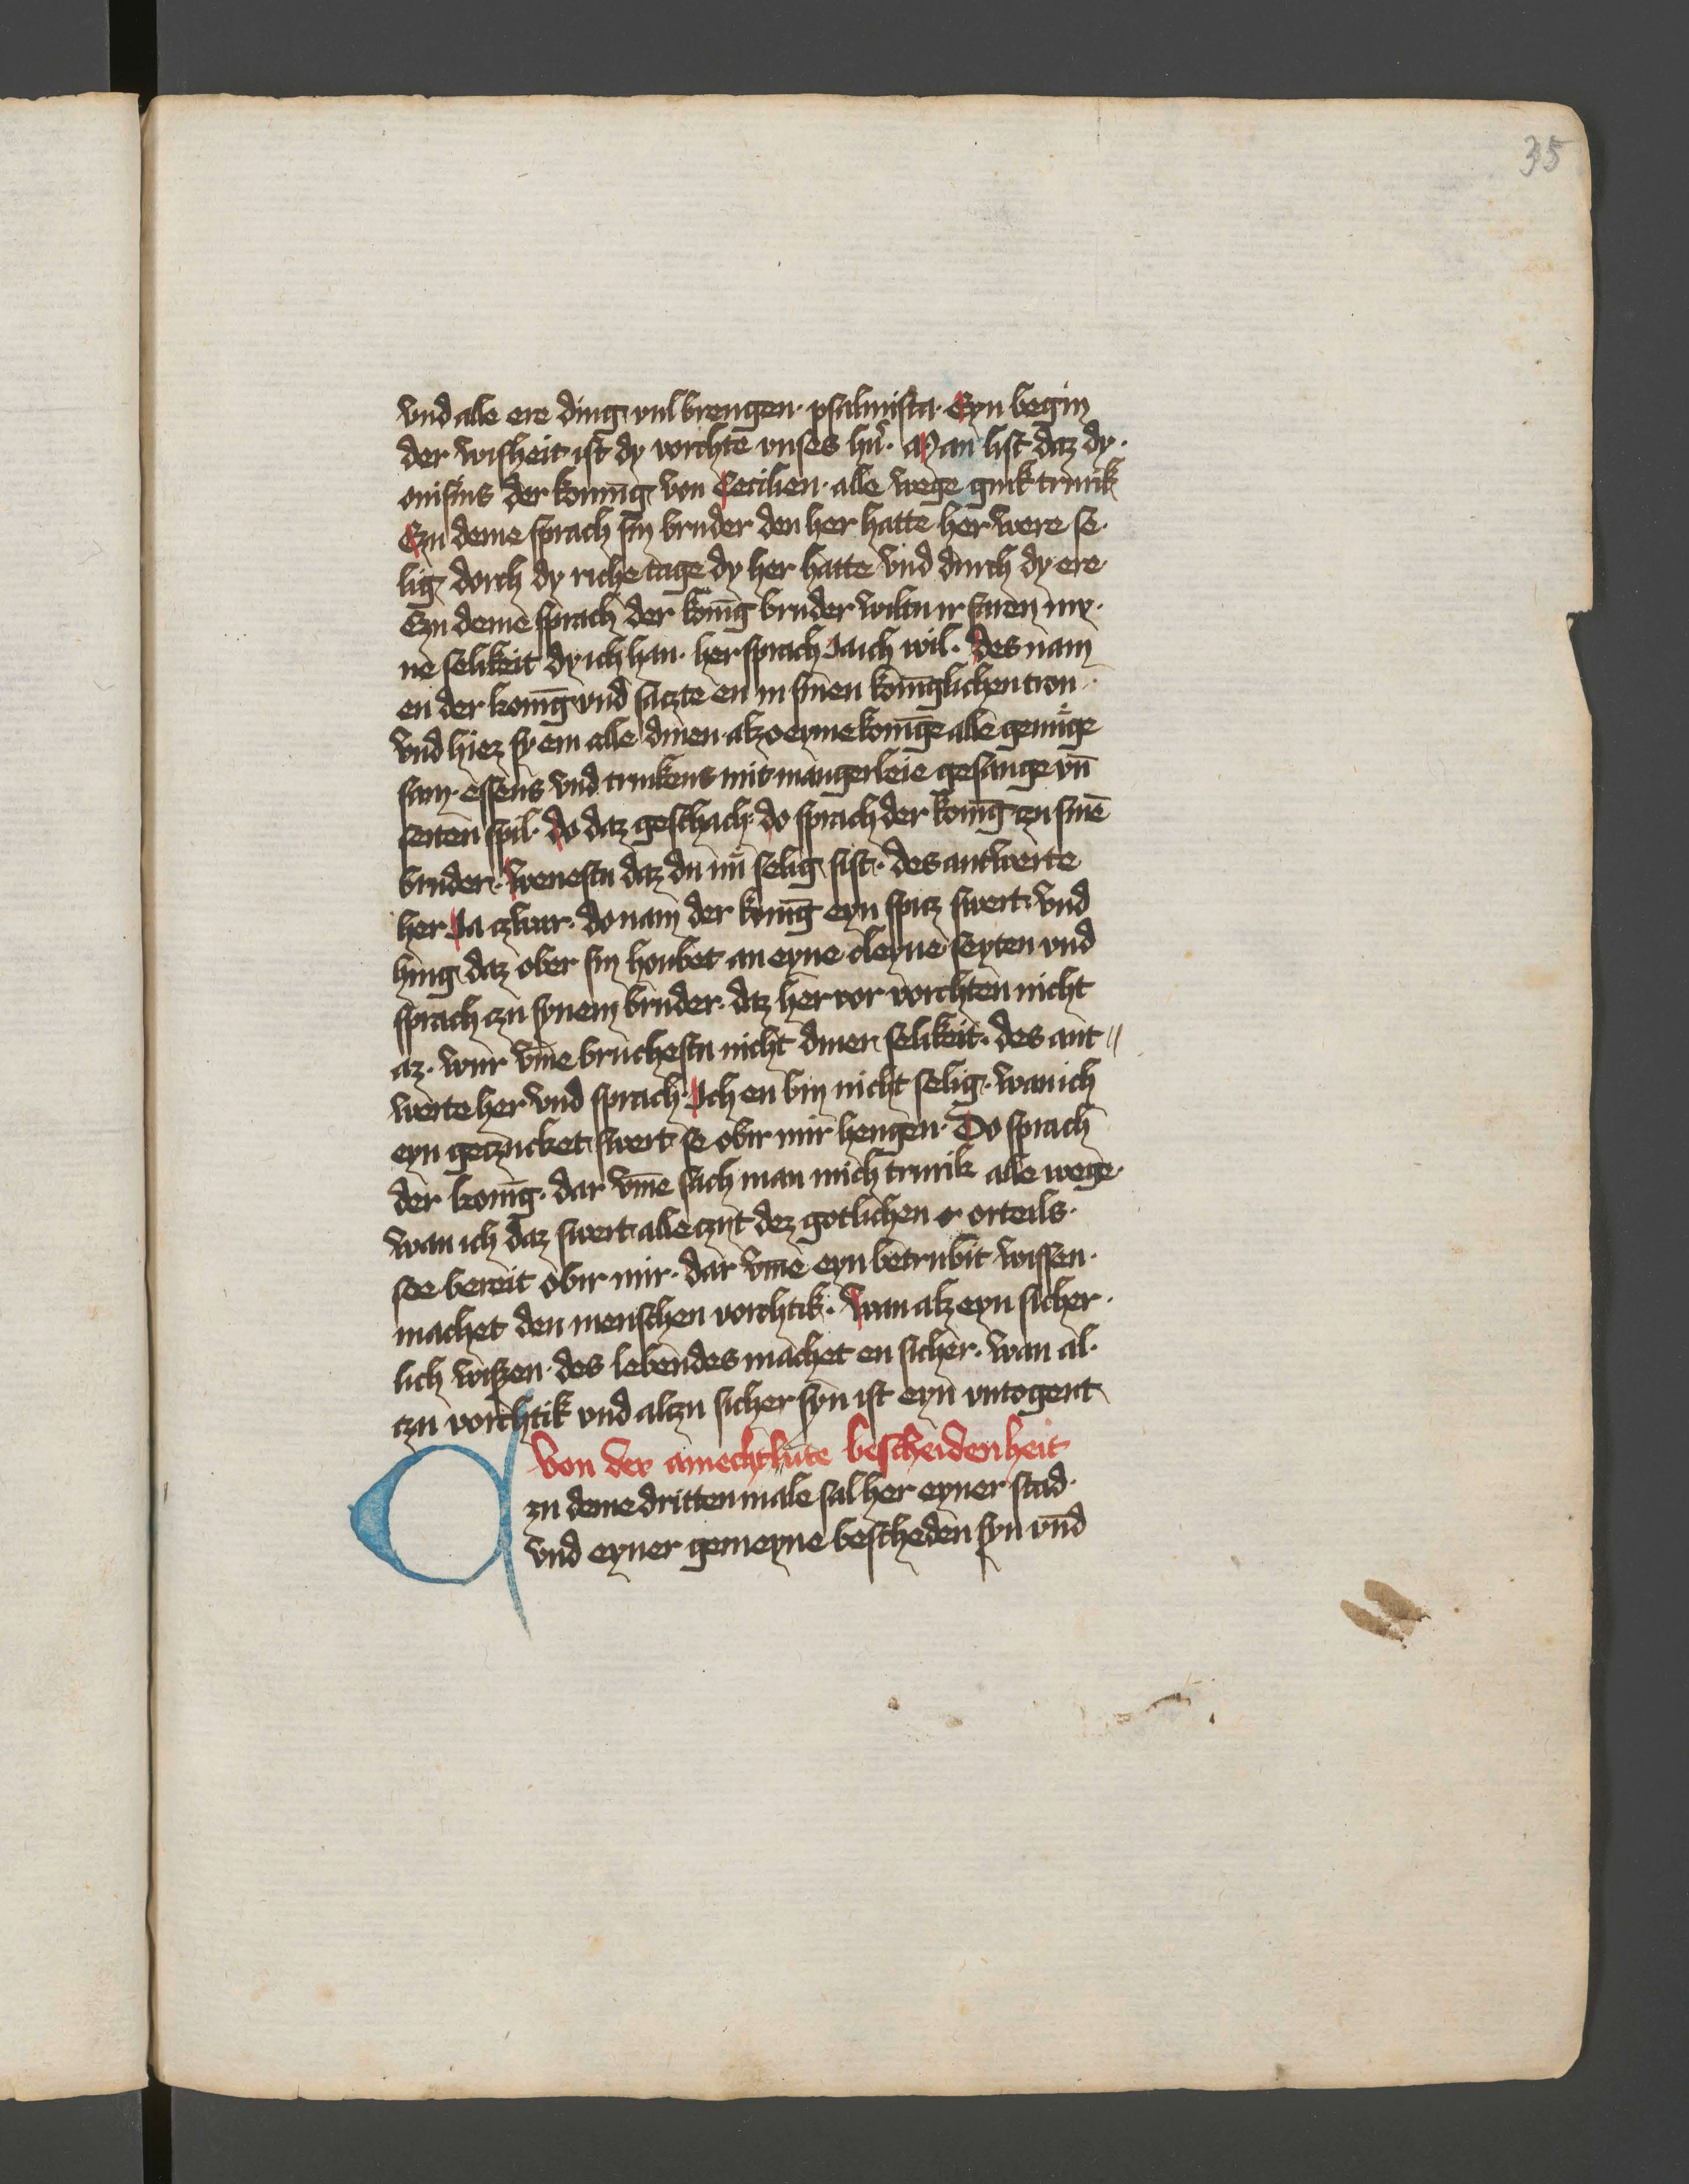 35
vnd alle ere ding vulbrengen · psalmista · Eyn begin
der wisheit ist dy vorchte vnses hn̄ · Man list daz dy ·
onisius der konnīg von Cecilien · alle wege gink trurik
Czu deme sprach sin bruder den her hatte her were se ·
lig dorch dy riche tage dy her hatte vnd durch dy ere ·
Czu deme sprach der konīg bruder wiltu irfaren my ·
ne selikeit dy ich han · her sprach Ja ich wil · des nam
en der konīg vnd saczte en in sinen konīglichen tron ·
vnd hiez sy em alle dinen · alzo eyme konīge alle genuge
sam · essens vnd trinkens mit mangerleie gesange vn̄
seiten spil · do daz geschach · do sprach der konīg czu sinē
bruder · wenestu daz du nu selig sist · des antwerte
her Ja czwar · do nam der konīg eyn spicz swert vnd
hing daz ober sin houbet an eyne cleyne seyten vnd
sprach czu synem bruder · daz her vor vorchten nicht
az · wur vm̄e bruchestu nicht diner selikeit · des ant //
werte her vnd sprach · Ich en bin nicht selig · wan ich
eyn geczucket swert se obir mir hengen · Do sprach
der konīg · dar vm̄e sach man mich trurik alle wege ·
wan ich daz swert alle czyt dez gotlichen orteils ·
see bereit obir mir · dar vm̄e eyn betrubit wissen ·
machet den menschen vorchtik · wan alz eyn sicher ·
lich wißen · des lebendes machet en sicher · wan al ·
czu vorchtik vnd alczu sicher syn ist eyn vntogent
Von der amechtlute bescheidenheit
zu deme dritten male sal her eyner stad ·
vnd eyner gemeyne bescheden syn vnd